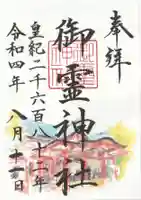 奉拝
御霊神社
皇紀二千六百八十二年
令和四年
八月十一日